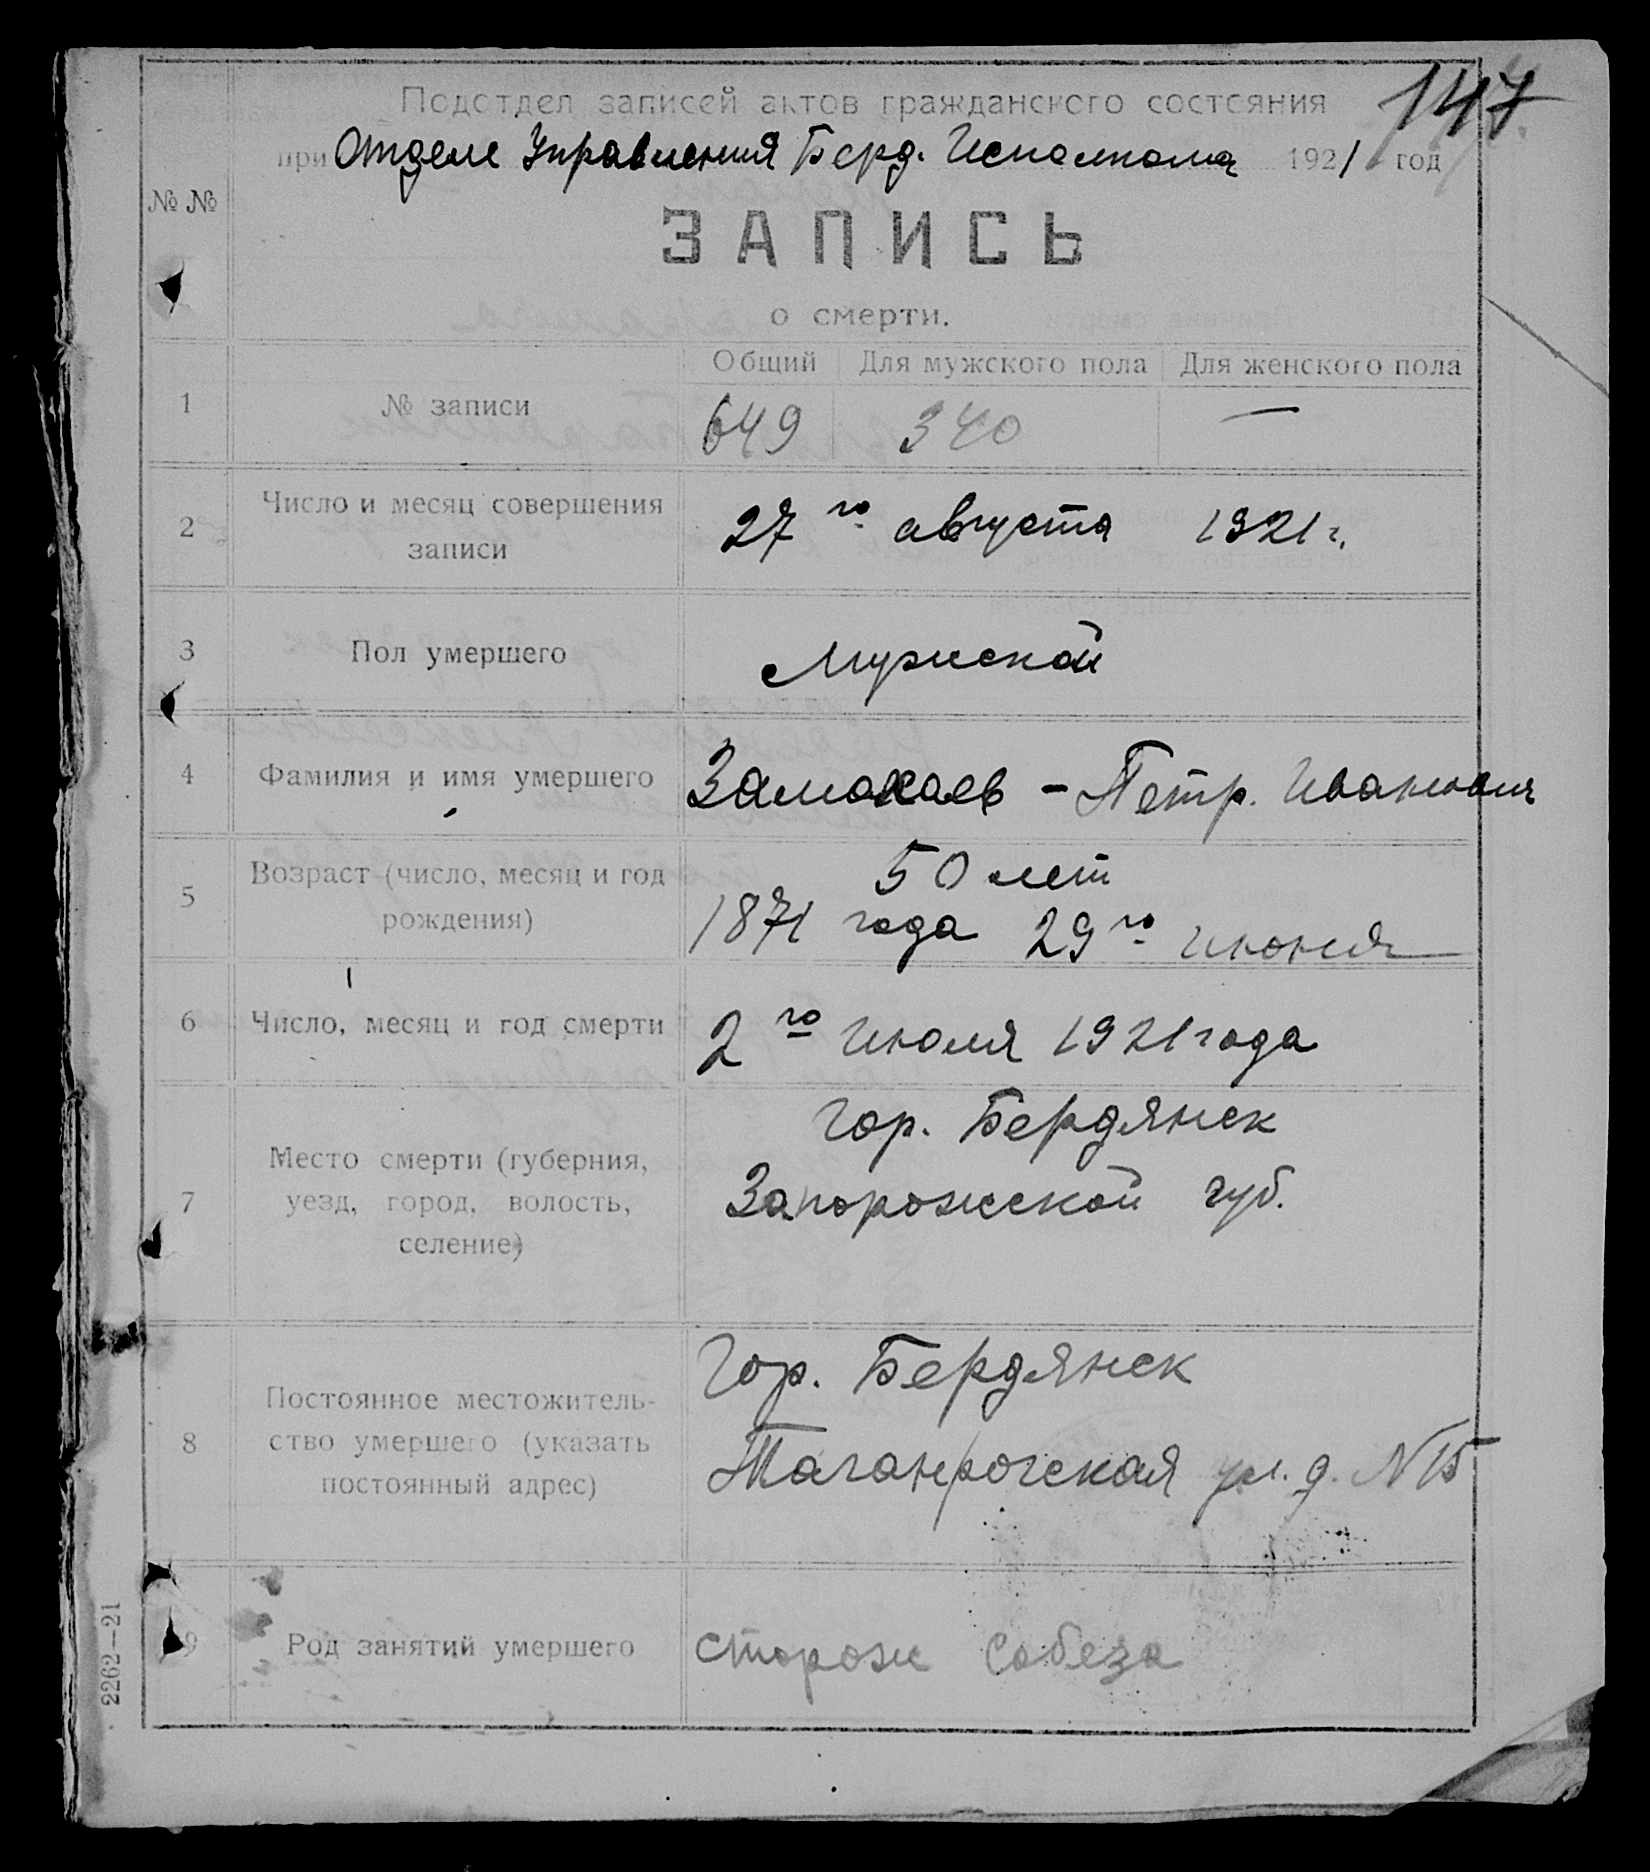 147
Подотдел записей актов гражданского состояния
при Отделе Управления Берд. Исполкома 1921 год
№ №
ЗАПИСЬ
о смерти.
Общий Для мужского пола Для женского пола
1 № записи 649 340 —
2 Число и месяц совершения записи 27го августа 1921 г.
3 Пол умершего Мужской
4 Фамилия и имя умершего Замахаев - Петр. Иванович
5 Возраст (число, месяц и год рождения) 50 лет
1871 года 29го июня
6 Число, месяц и год смерти 2го Июля 1921 года
7 Место смерти (губерния, уезд, город, волость, селение) Гор. Бердянск
Запорожской губ.
8 Постоянное местожительство умершего (указать постоянный адрес) Гор. Бердянск
Таганрогская ул. д. N 15
9 Род занятий умершего сторож Собеза
2262—21